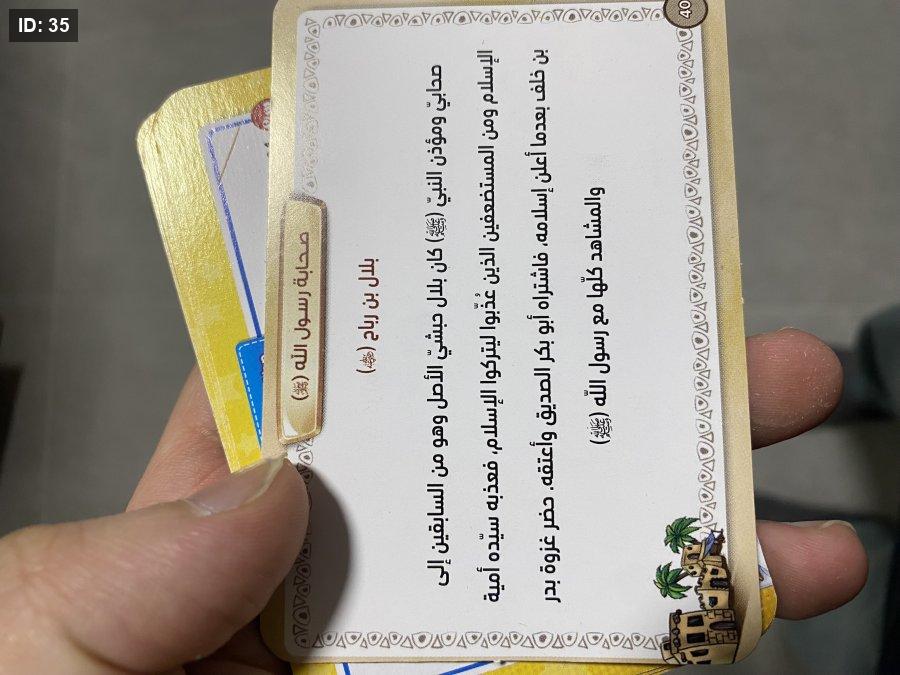 ID: 35
40
صحابة رسول الله (ﷺ)
بلال بن رباح (رضي الله عنه)
صحابيّ ومؤذن النبيّ (ﷺ) كان بلال حبشيّ الأصل وهو من السابقين إلى
الإسلام ومن المستضعفين الذين عُذّبوا ليتركوا الإسلام، فعذبه سيّده أمية
بن خلف بعدما أعلن إسلامه، فاشتراه أبو بكر الصديق وأعتقه. حضر غزوة بدر
والمشاهد كلّها مع رسول الله (ﷺ)